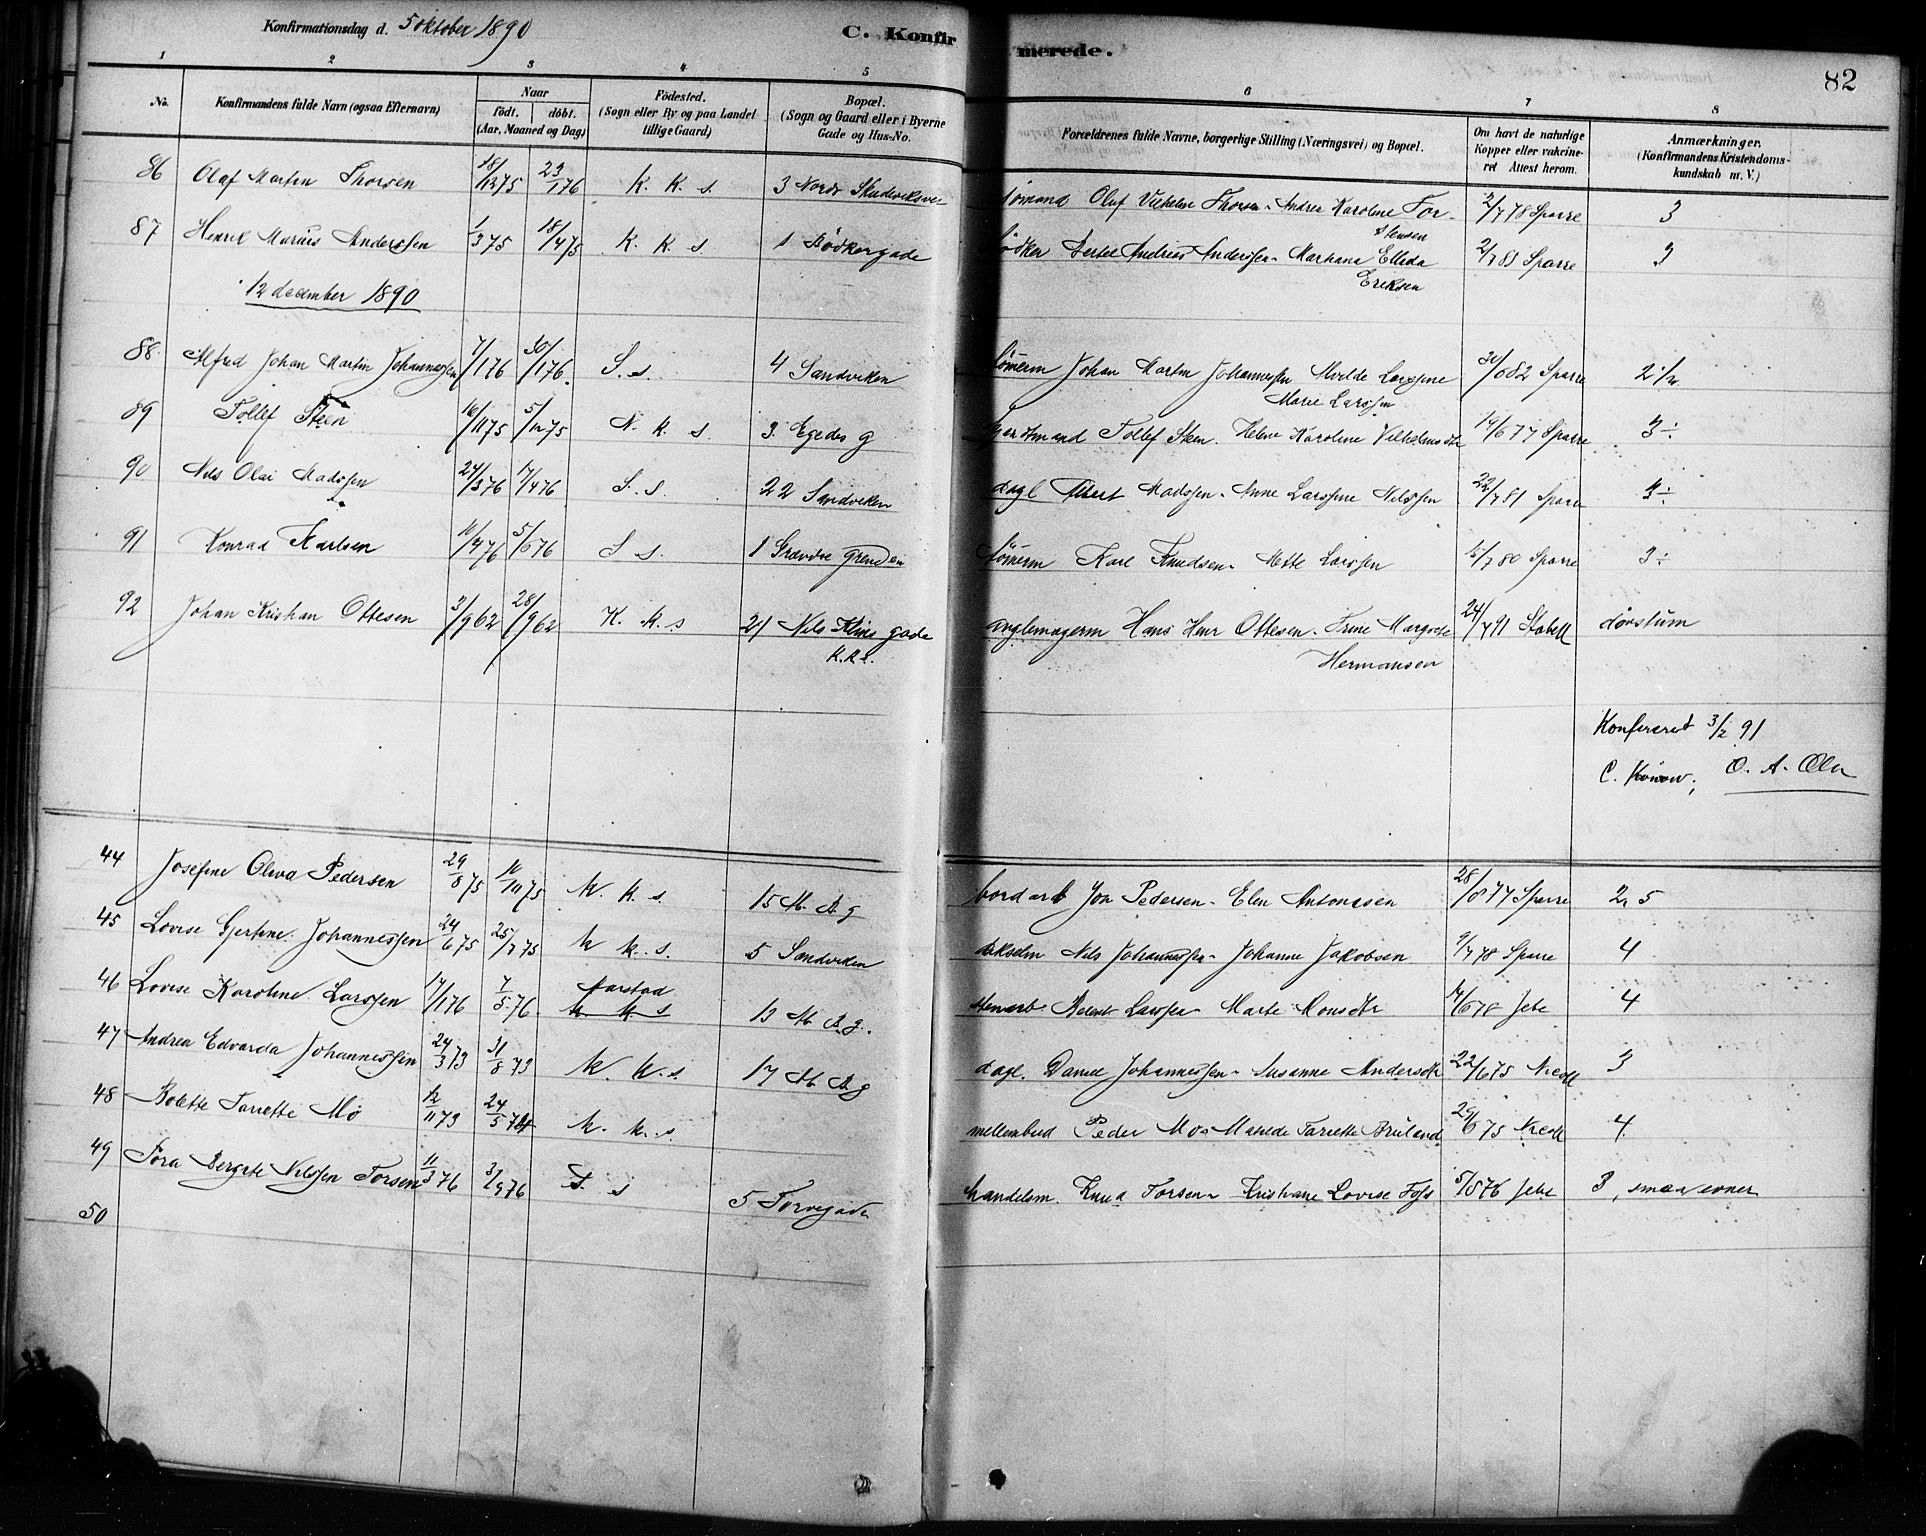 Konfirmationsdag d. 5 oktober 1890
C. Konfirmerede.
82
1 2 3 4 5 6 7 8
No. Konfirmandens fulde Navn (ogsaa Efternavn) Naar født. døbt. (Aar, Maaned og Dag) Fødested. (Sogn eller By og paa Landet tillige Gaard) Bopæl. (Sogn og Gaard eller i Byerne Gade og Hus-No. Forældrenes fulde Navne, borgerlige Stilling (Næringsvei) og Bopæl. Om havt de naturlige Kopper eller vakcineret Attest herom. Anmærkninger. (Konfirmandens Kristendomskundskab m. V.)
86 Olaf Martin Thorsen 18/12 75 23/1 76 K. K. s. 3 Nordr Skudeviksvei sømand Oluf Vilhelm Thorsen - Andrea Karoline Torstensen 2/7 78 Sparre 3
87 Henrik Marius Anderssen 1/3 75 18/4 75 K. K. s 1 Bødkergade bødker Bertel Andreas Anderssen - Marthana Ellida Eriksen 2/7 83 Sparre 3
12 december 1890
88 Alfred Johan Martin Johannessen 7/1 76 30/1 76 S. s. 4 Sandviken tømerm Johan Martin Johannessen Larssine Marie Larssen 30/6 82 Sparre 2 1/2
89 Tollef Steen 16/11 75 5/12 75 N. K. s. 3 Egedes g Tollef Steen. Helene Karoline Vilhelmsdtr 19/6 77 Sparre 3 ÷
90 Nils Olai Madssen 24/3 76 17/4 76 S. s. 22 Sandviken dagl Madssen - Anne Larssine Nilssen 22/7 81 Sparre 3 ÷
91 Konrad Karlsen 10/4 76 5/6 76 S s. 1 grenden tømerm Karl Knudsen - Mette Larssen 7 80 Sparre 3 ÷
92 Johan Kristian Ottesen 3/9 62 28/9 62 K. K. s 21 Nils Klims gade K.K.s. Hans Henr Ottesen - Trine Margrete Hermansen 24/7 91 Stabell døvstum
Konfereret 3/2 91
C. Konow; O. A.
44 Josefine Oliva Pedersen 29/8 75 10/10 75 K K. s. 15 M. B. g bord arb Jon Pedersen - Elen Antonssen 28/8 77 Sparre 2,5
45 Lovise Gjertine Johannessen 24/6 75 25/7 75 K K. s. 5 Sandviken Nils Johannessen - Johanne Jakobsen 9/7 78 Sparre 4
46 Lovise Karoline Larssen 17/1 76 7/5 76 Aarstad K K s 13 M. B. g. stenarb Berent Larssen Marte Monsdtr 14/6 78 Jebe 4
47 Andrea Edvarda Johannessen 24/3 73 31/8 73 K. K. s. 17 M. B. g dagl. Daniel Johannessen - Susanne Andersdtr 22/6 75 3
48 Bolette Tarrette Mo 12/11 73 24/5 74 K. K. s mellembud Peder Mo - Tarrette Bruland 29/6 75 4
49 Tora Bergete Nilssen Torsen 11/3 76 3/9 76 S. s 5 Torvegade handelsm. Knud Torsen - Kristiane Lovise Foss 5/5 76 Jebe 3, smaa evner
50